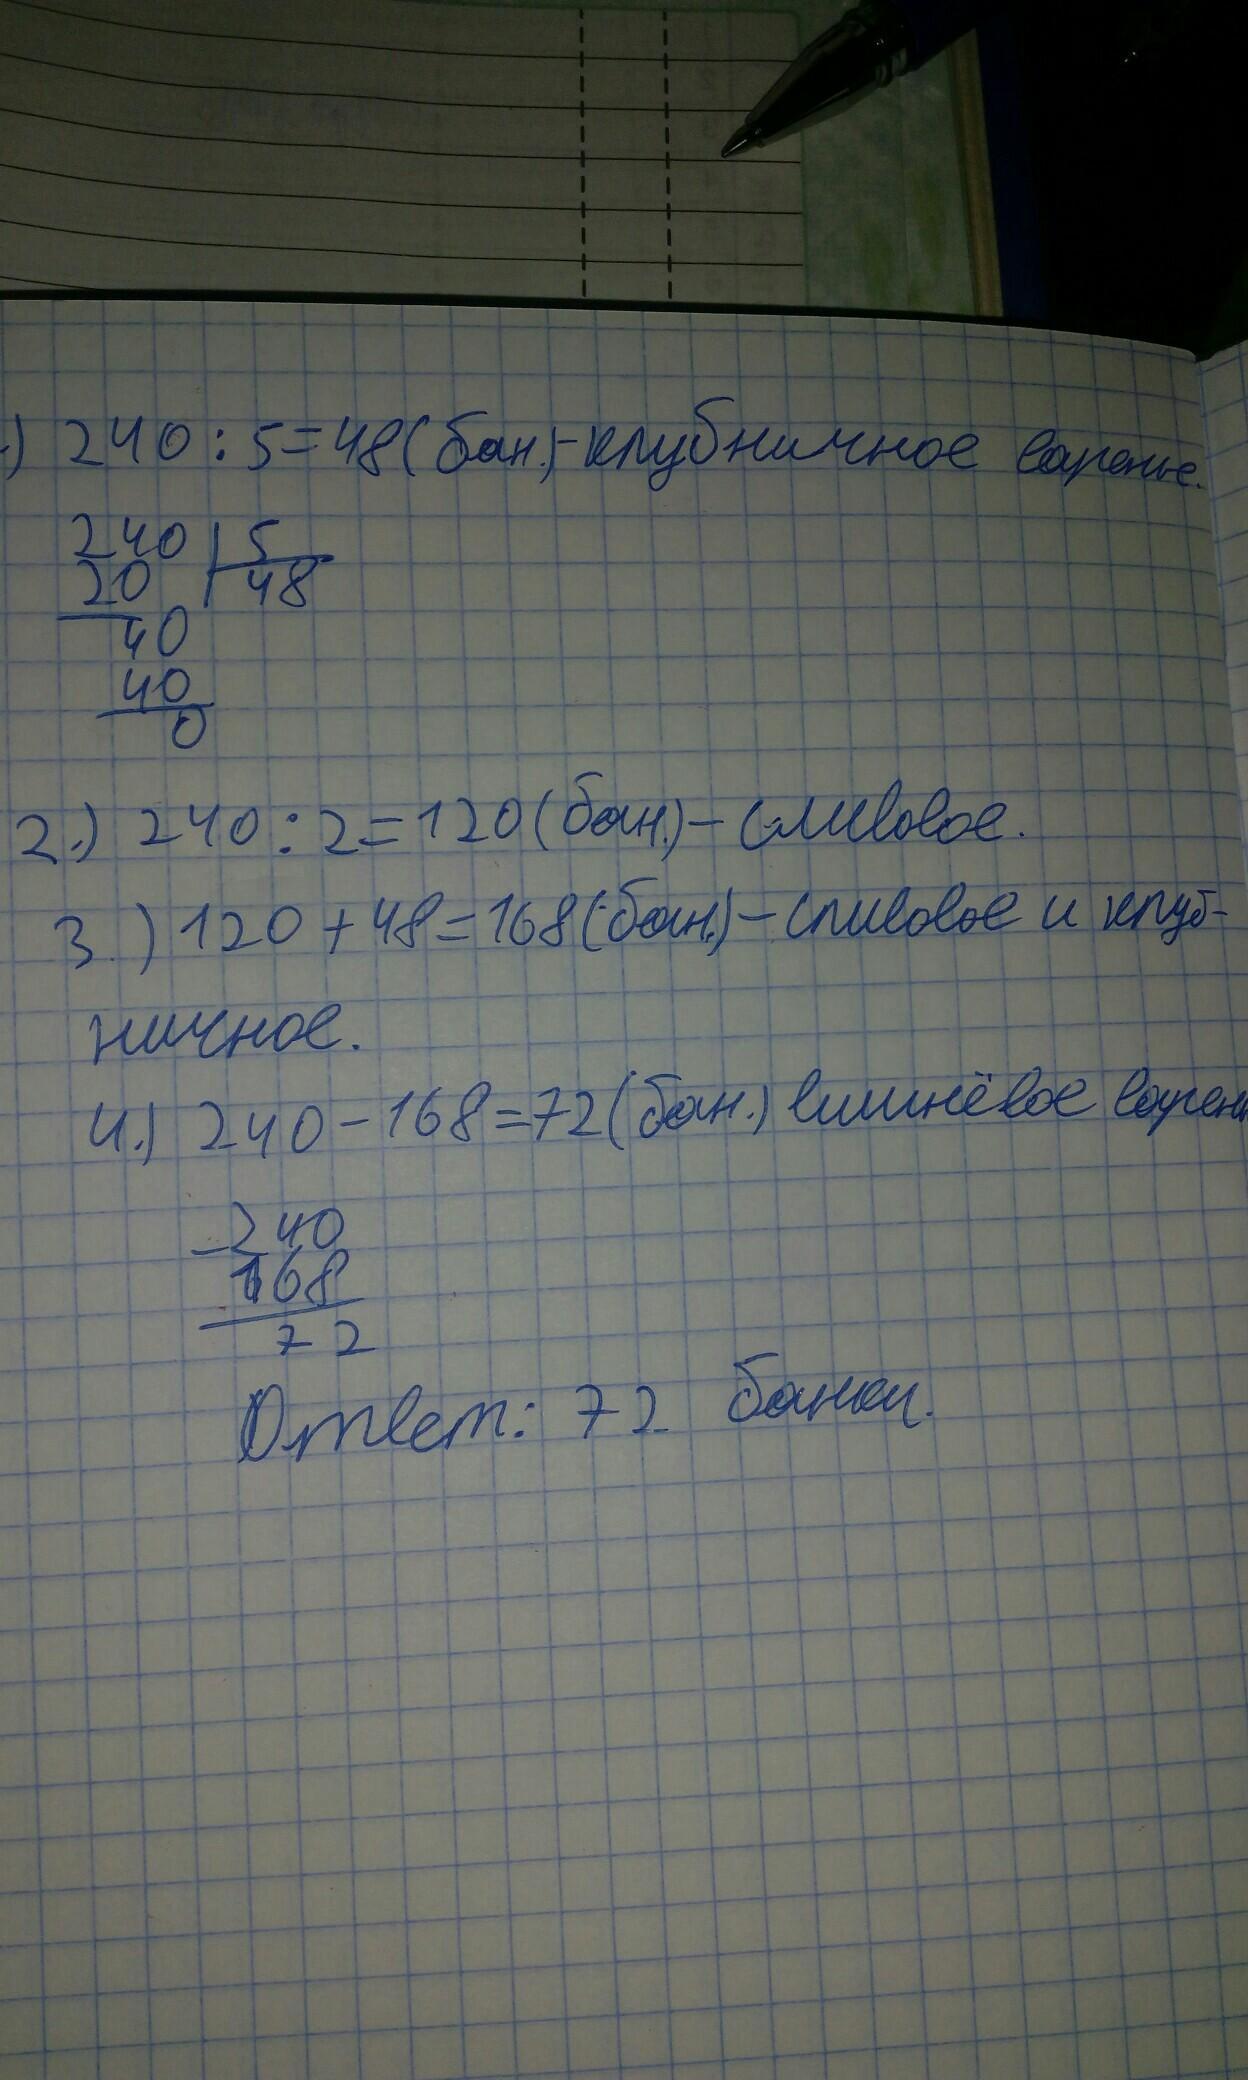 ) 240 : 5 = 48 (бан.) - клубничное варенье.
240 | 5
20 48
40
40
0
2.) 240 : 2 = 120 (бан.) - сливовое.
3.) 120 + 48 = 168 (бан.) - сливовое и клуб-
ничное.
4.) 240 - 168 = 72 (бан.) вишнёвое варень
- 240
168
72
Ответ: 72 банки.